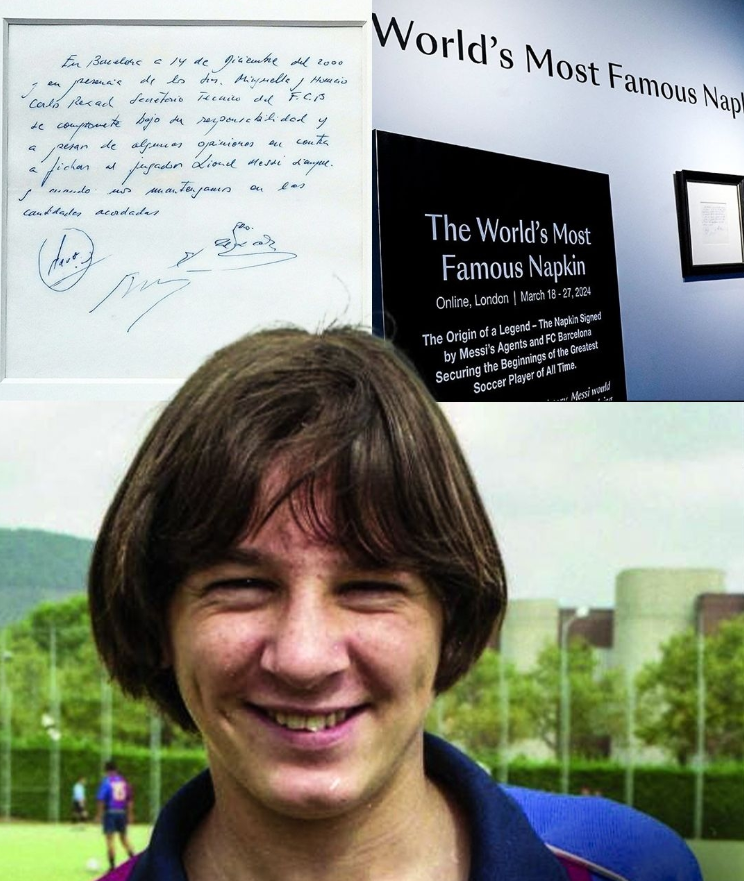 En Barcelona a 14 de Diciembre del 2000
y en presencia de los Sres. Minguella y Horacio
Carlos Rexach Secretario Técnico del F.C.B
se compromete bajo su responsabilidad y
a pesar de algunas opiniones en contra
a fichar al jugador Lionel Messi siempre
y cuando nos mantengamos en las
cantidades acordadas
World's Most Famous Nap
The World's Most
Famous Napkin
Online, London | March 18 - 27, 2024
The Origin of a Legend – The Napkin Signed
by Messi's Agents and FC Barcelona
Securing the Beginnings of the Greatest
Soccer Player of All Time.
Messi would